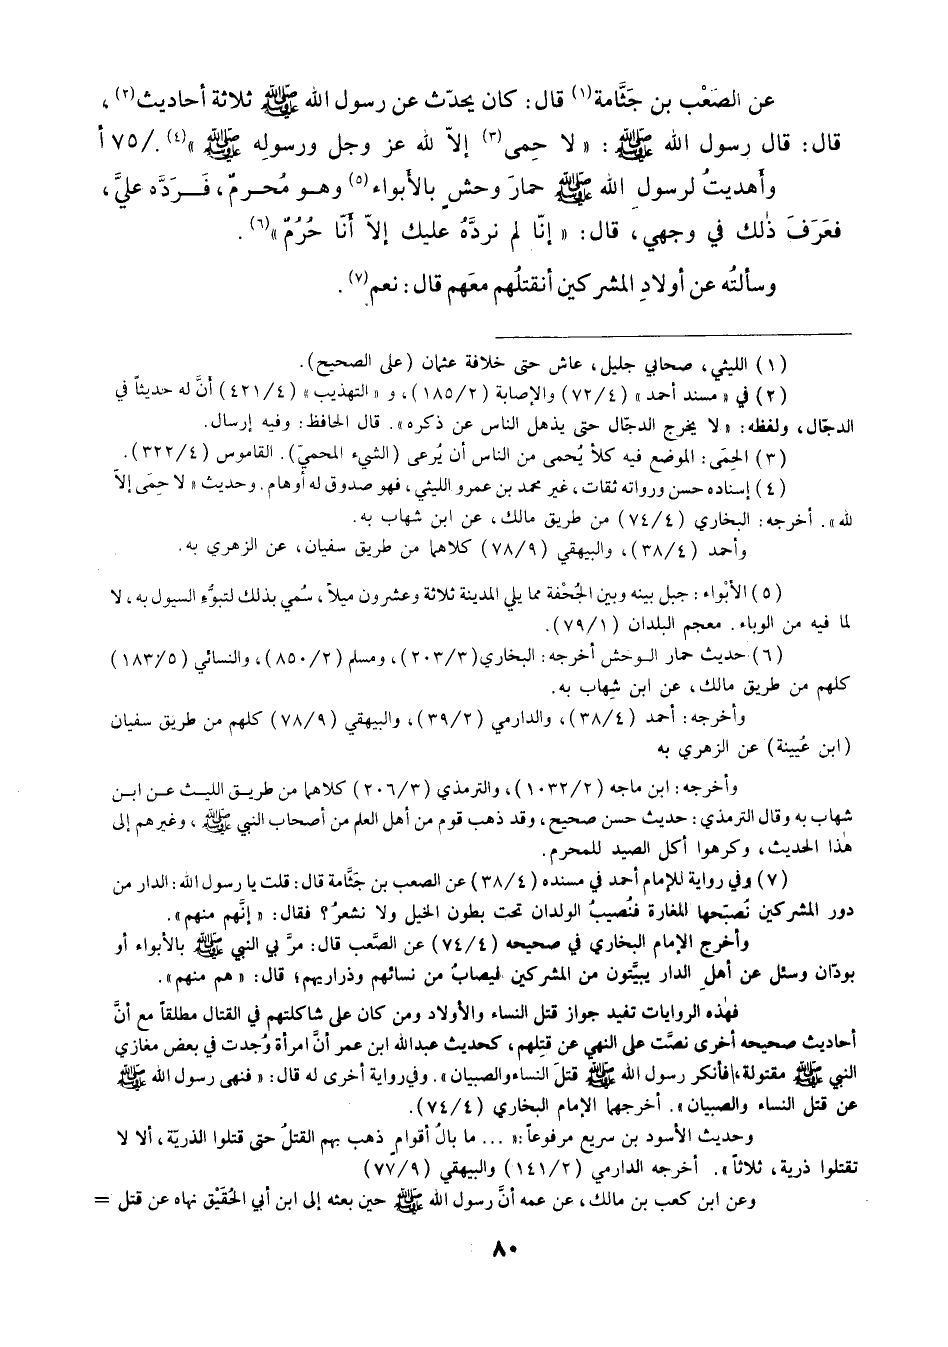 عن الصَعْب بن جَثَّامة(١) قال: كان يحدّث عن رسول الله ﷺ ثلاثة أحاديث(٢)،
قال: قال رسول الله ﷺ: « لا حِمى(٣) إلاّ لله عز وجل ورسولِه ﷺ »(٤). /٧٥ أ
وأهديتُ لرسول الله ﷺ حمارَ وحشٍ بالأبواء(٥) وهو مُحرمٌ، فَرَدَّه عليَّ،
فعَرَفَ ذٰلك في وجهي، قال: « إنّا لم نردَّهُ عليك إلاّ أنّا حُرُمٌ »(٦).
وسألتُه عن أولادِ المشركين أنقتلُهم معَهم قال: نعم(٧).
(١) الليثي، صحابي جليل، عاش حتى خلافة عثمان (على الصحيح).
(٢) في « مسند أحمد » (٧٢/٤) والإصابة (١٨٥/٢)، و « التهذيب » (٤٢١/٤) أنَّ له حديثاً في
الدجّال، ولفظه: « لا يخرج الدجّال حتى يذهل الناس عن ذكره». قال الحافظ: وفيه إرسال.
(٣) الحِمَى: الموضع فيه كلأ يُحمى من الناس أن يُرعى (الشيء المحميّ). القاموس (٣٢٢/٤).
(٤) إسناده حسن ورواته ثقات، غير محمد بن عمرو الليثي، فهو صدوق له أوهام. وحديث « لا حِمَى إلاّ
لله». أخرجه: البخاري (٧٤/٤) من طريق مالك، عن ابن شهاب به.
وأحمد (٣٨/٤)، والبيهقي (٧٨/٩) كلاهما من طريق سفيان، عن الزهري به.
(٥) الأبْواء: جبل بينه وبين الجُحْفة مما يلي المدينة ثلاثة وعشرون ميلاً، سُمي بذلك لتبوُّءِ السيول به، لا
لما فيه من الوباء. معجم البلدان (٧٩/١).
(٦) حديث حمار الوحش أخرجه: البخاري(٢٠٣/٣)، ومسلم (٨٥٠/٢)، والنسائي (١٨٣/٥)
كلهم من طريق مالك، عن ابن شِهاب به.
وأخرجه: أحمد (٣٨/٤)، والدارمي (٣٩/٢)، والبيهقي (٧٨/٩) كلهم من طريق سفيان
(ابن عُيينة) عن الزهري به
وأخرجه: ابن ماجه (١٠٣٢/٢)، والترمذي (٢٠٦/٣) كلاهما من طريق الليث عن ابن
شهاب به وقال الترمذي: حديث حسن صحيح، وقد ذهب قوم من أهل العلم من أصحاب النبي ﷺ، وغيرهم إلى
هٰذا الحديث، وكرهوا أكل الصيد للمحرم.
(٧) وفي رواية للإمام أحمد في مسنده (٣٨/٤) عن الصعب بن جَثَّامة قال: قلت يا رسول الله: الدار من
دور المشركين نُصبّحها للغارة فنُصيبُ الولدان تحت بطون الخيل ولا نشعرُ؟ فقال: « إنَّهم منهم».
وأخرج الإمام البخاري في صحيحه (٧٤/٤) عن الصَّعب قال: مرَّ بي النبي ﷺ بالأبواء أو
بودّان وسئل عن أهلِ الدار يبيَّتون من المشركين فيصابُ من نسائهم وذراريهم؛ قال: « هم منهم».
فهٰذه الروايات تفيد جواز قتل النساء والأولاد ومن كان على شاكلتهم في القتال مطلقاً مع أنَّ
أحاديث صحيحه أخرى نصَّت على النهي عن قتلهم، كحديث عبدالله ابن عمر أنَّ امرأة وُجدت في بعض مغازي
النبي ﷺ مقتولة، فأنكر رسول الله ﷺ قتلَ النساء والصبيان». وفي رواية أخرى له قال: « فنهى رسول الله ﷺ
عن قتل النساء والصبيان». أخرجها الإمام البخاري (٧٤/٤).
وحديث الأسود بن سريع مرفوعاً: « ... ما بالُ أقوامٍ ذهب بهم القتلُ حتى قتلوا الذريّة، ألا لا
تقتلوا ذرية، ثلاثاً ». أخرجه الدارمي (١٤١/٢) والبيهقي (٧٧/٩)
وعن ابن كعب بن مالك، عن عمه أنَّ رسول الله ﷺ حين بعثه إلى ابن أبي الحُقَيْق نهاه عن قتل =
٨٠